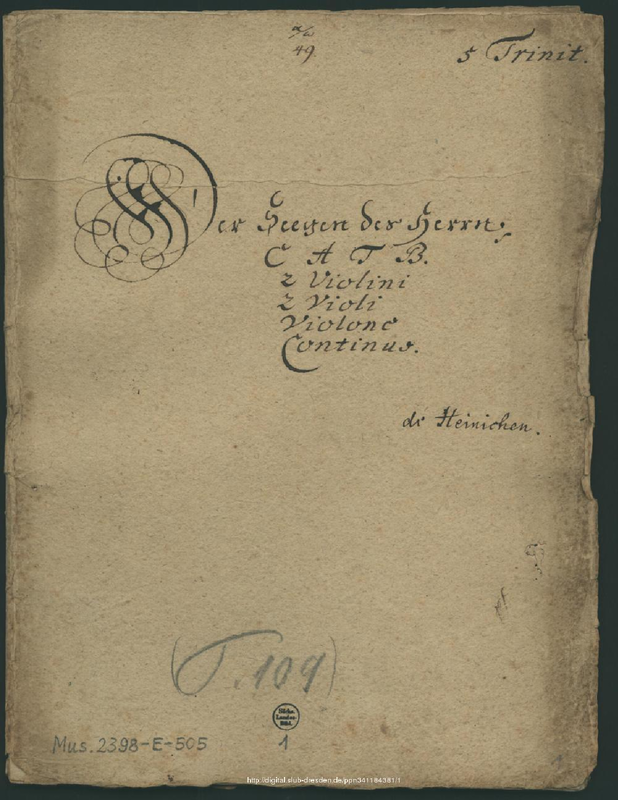 a/w
49
5 Trinit.
Der Seegen des Herrn;
C A T B.
2 Violini
2 Violi
Violono
Continuo.
di Heinichen.
(T. 109)
Sächs.
Landes-
Bibl.
Mus. 2398-E-505
1
http://digital.slub-dresden.de/ppn341184381/1